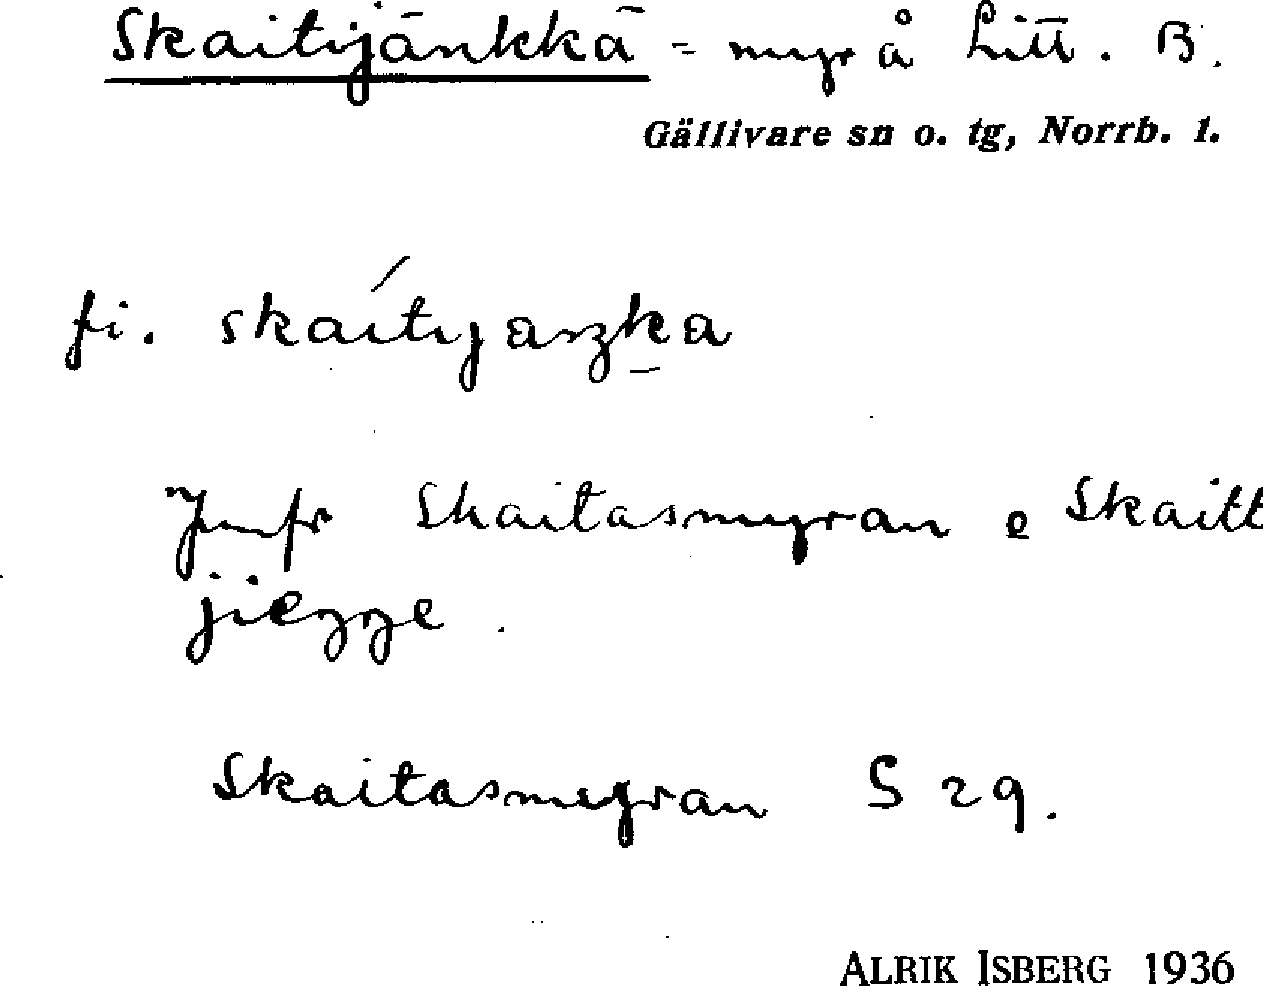 Skaitijänkkä - myr å Litt. B.
Gällivare sn o. tg, Norrb. l.
fi.
Jmfr Skaitasmyran o Skaitt
jiegge.
Skaitasmyran S 29.
ALRIK ISBERG 1936